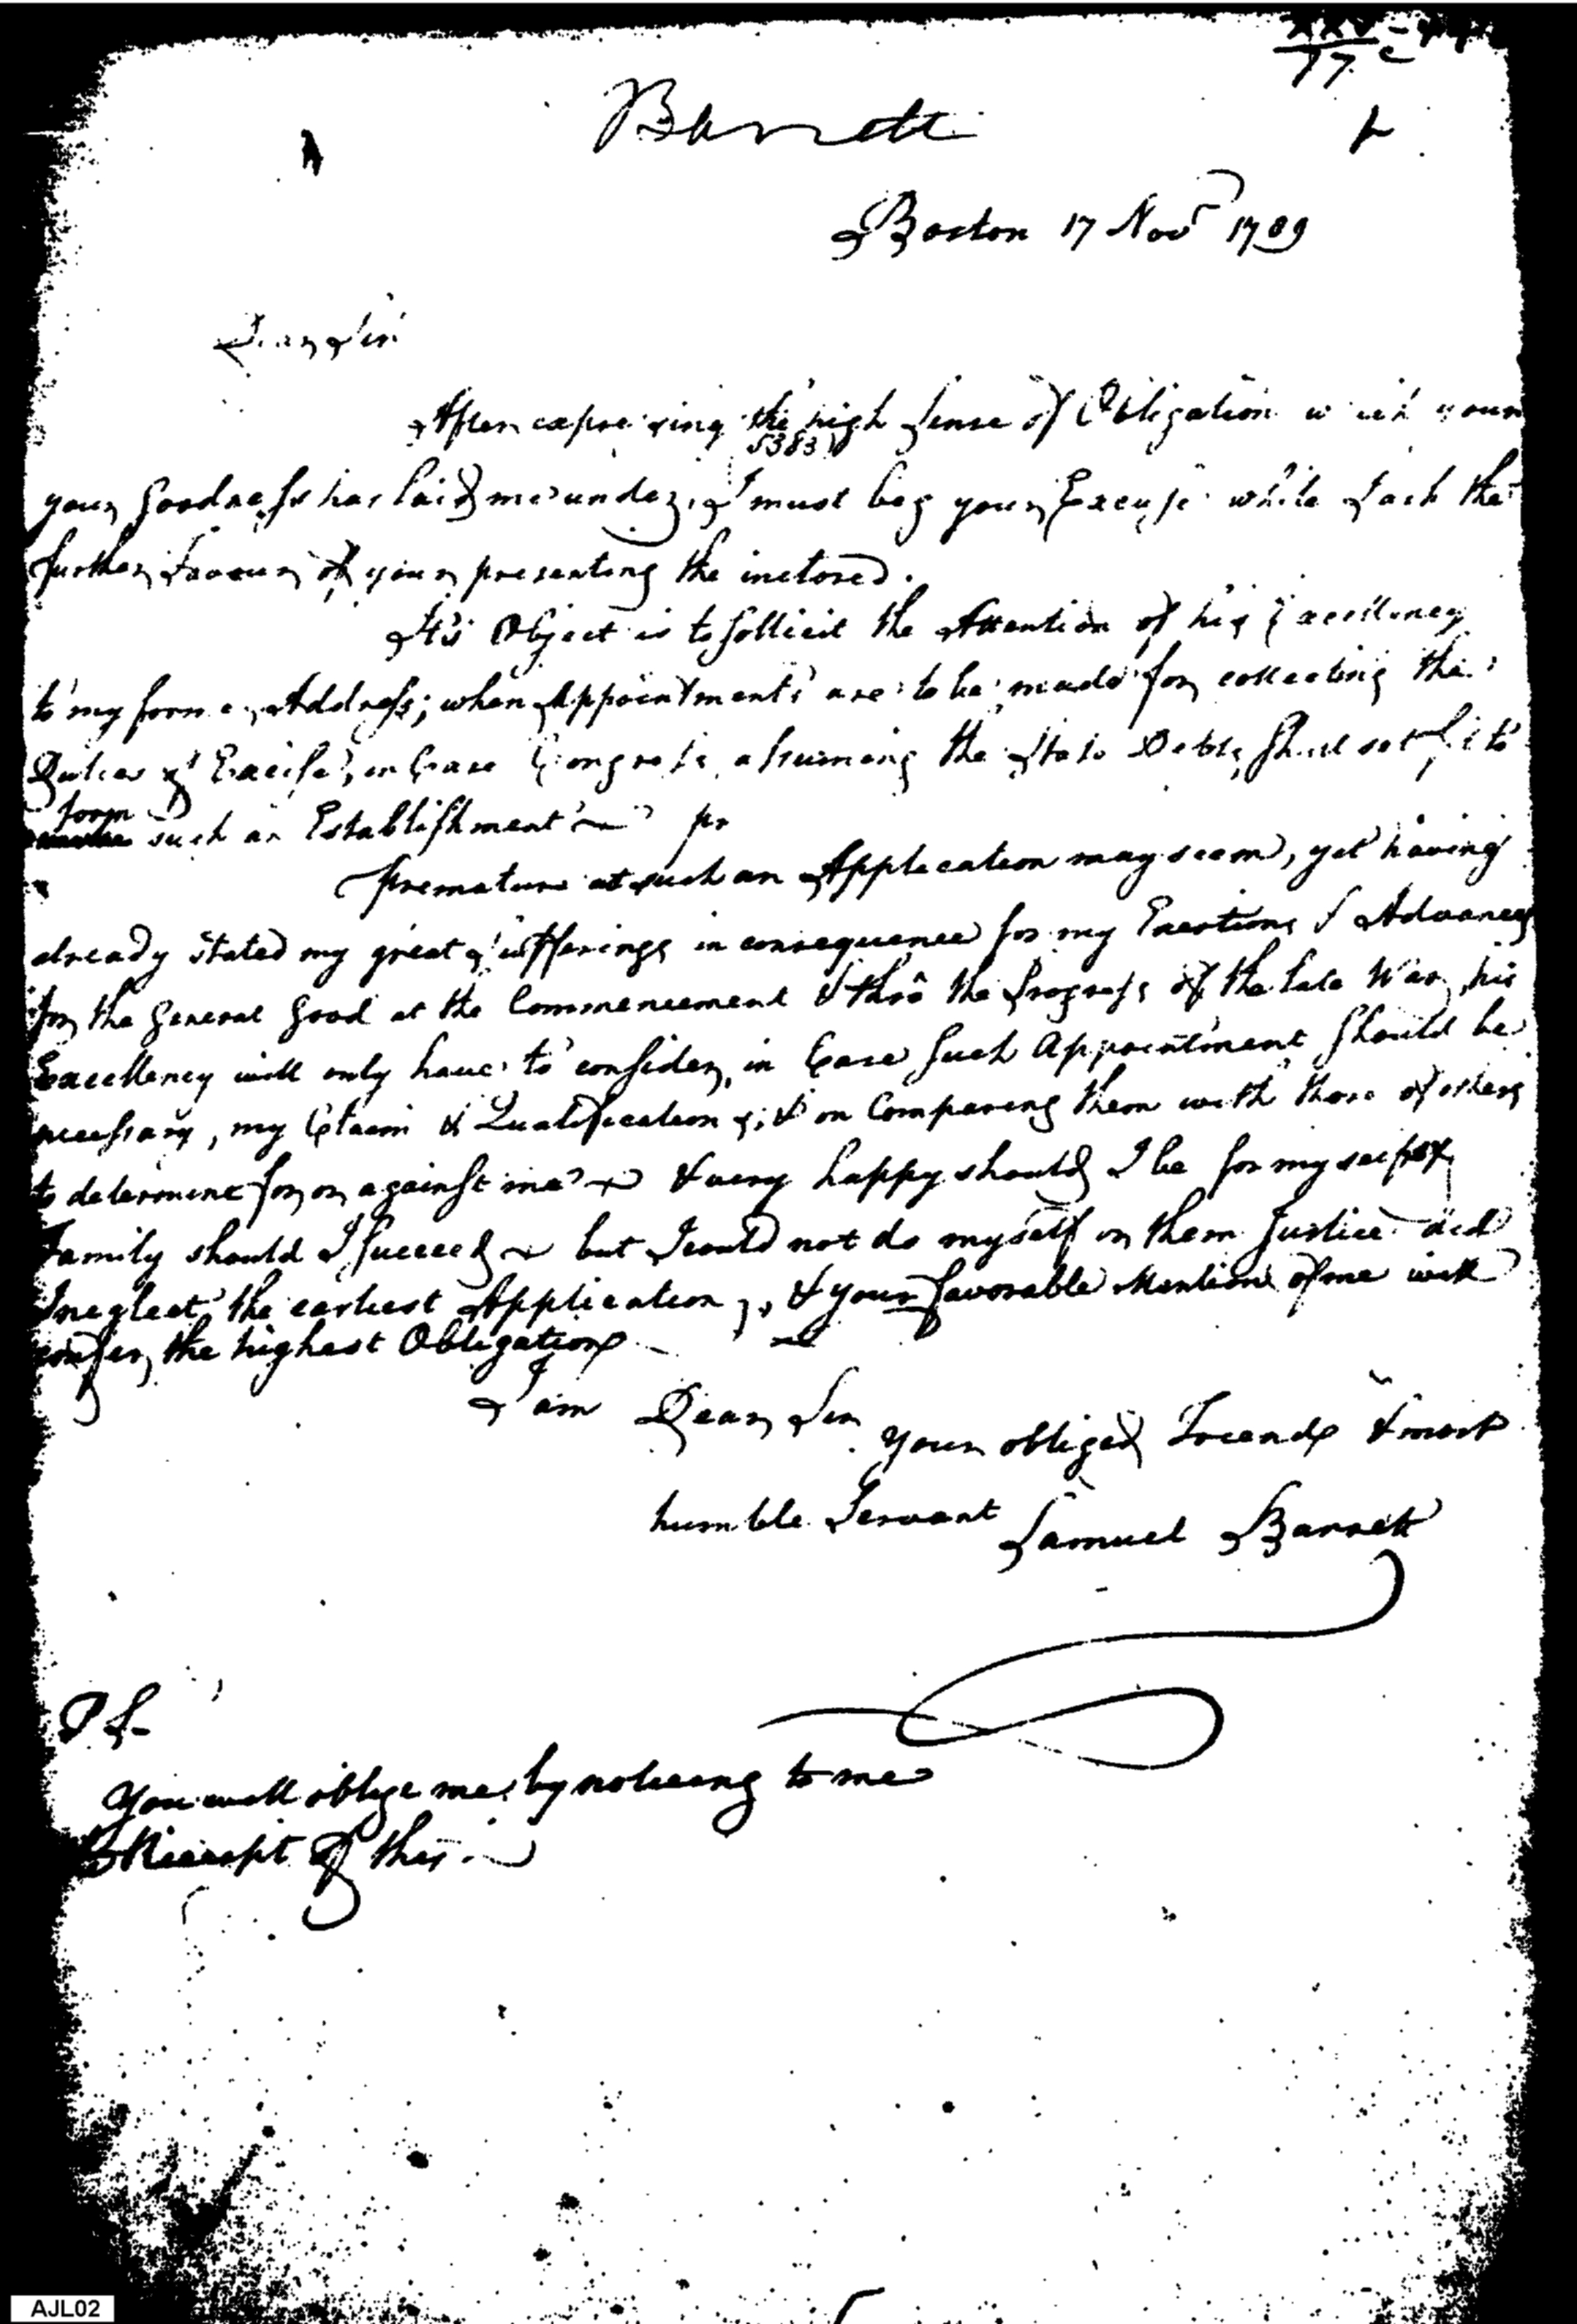 17
Barrett
Boston 17 Novr 1789
Dear Sir
After expressing the high Sense of Obligation which your
5383
your Goodness has laid me under, I must beg your Excuse while I ask the
further Favour of your presenting the inclosed.
It's Object is to sollicit the Attention of his Excellency
to my former Address; when Appointments are to be made for collecting the
Duties of Excise, in Case Congress, assuming the State Debts, shall see fit to
form
such an Establishment pr
Premature as such an Application may seem, yet having
already stated my great sufferings in consequence for my Exertions & Advances
for the General Good at the Commencement & thrô the Progress of the late War, his
Excellency will only have to consider, in Case such Appointment should be
necessary, my Claim & Qualifications; & on Comparing them with those of others
to determine for or against me & very happy should I be for myself &
Family should I succeed but I could not do myself or them Justice did
I neglect the earliest Application, & your favorable Mention of me will
confer the highest Obligation
I am Dear Sir
your obliged Friend & most
humble Servant
Samuel Barrett
PS
You will oblige me by noticing to me
Receipt of this
AJL02